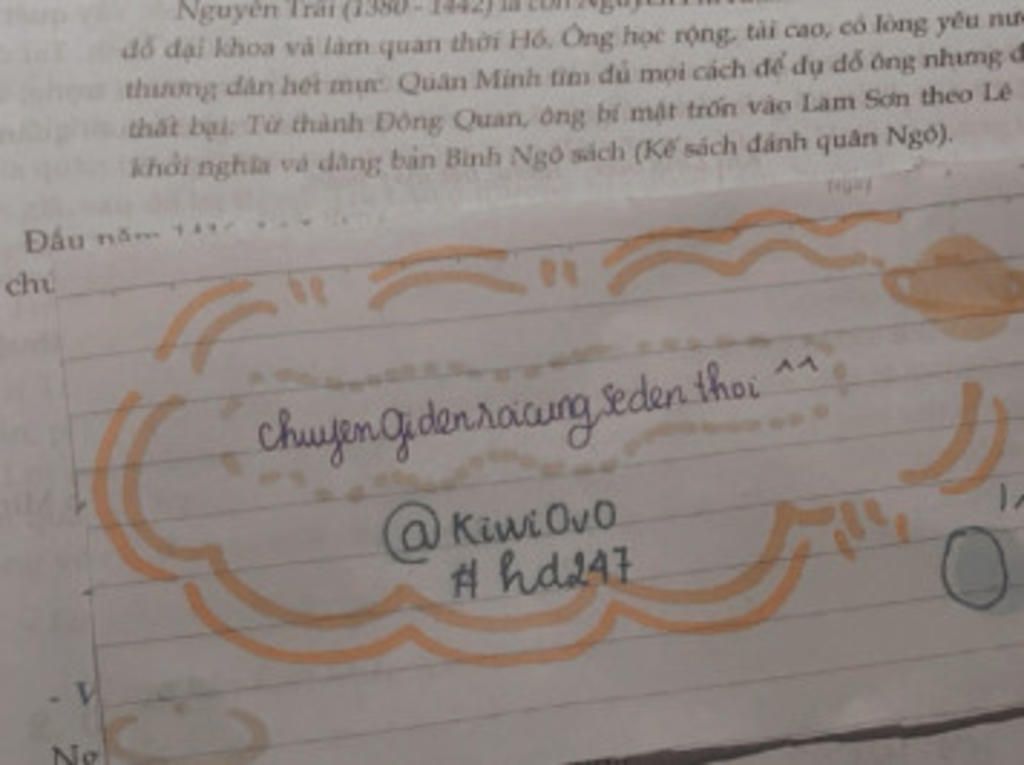 Nguyễn Trãi (1380 - 1442) là con Nguyễn
đỗ đại khoa và làm quan thời Hồ. Ông học rộng, tài cao, có lòng yêu nước
thương dân hết mực. Quân Minh tìm đủ mọi cách để dụ dỗ ông nhưng
thất bại. Từ thành Đông Quan, ông bí mật trốn vào Lam Sơn theo Lê
khởi nghĩa và dâng bản Bình Ngô sách (Kế sách đánh quân Ngô).
Đầu năm
chuyengidenroicungseden thoi ^^
@Kiwi0v0
#hd247